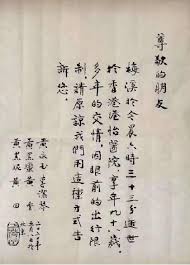 尊敬的朋友
梅溪於今晨六時三十三分逝世
於香港港怡醫院,享年九十八歲。
多年的交情,因眼前的出行限
制,請原諒我們用這種方式告
訴您。
黄永玉
黄黑蠻 黄
黄黑妮 黄田
北京